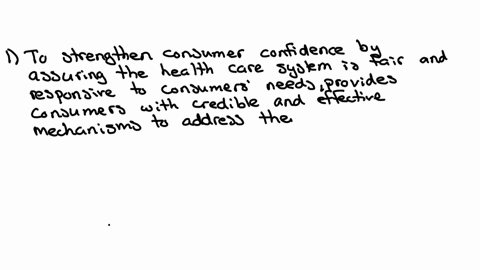 1) To strengthen consumer confidence by
assuring the health care system is fair and
responsive to consumers' needs, provides
consumers with credible and effective
mechanisms to address the